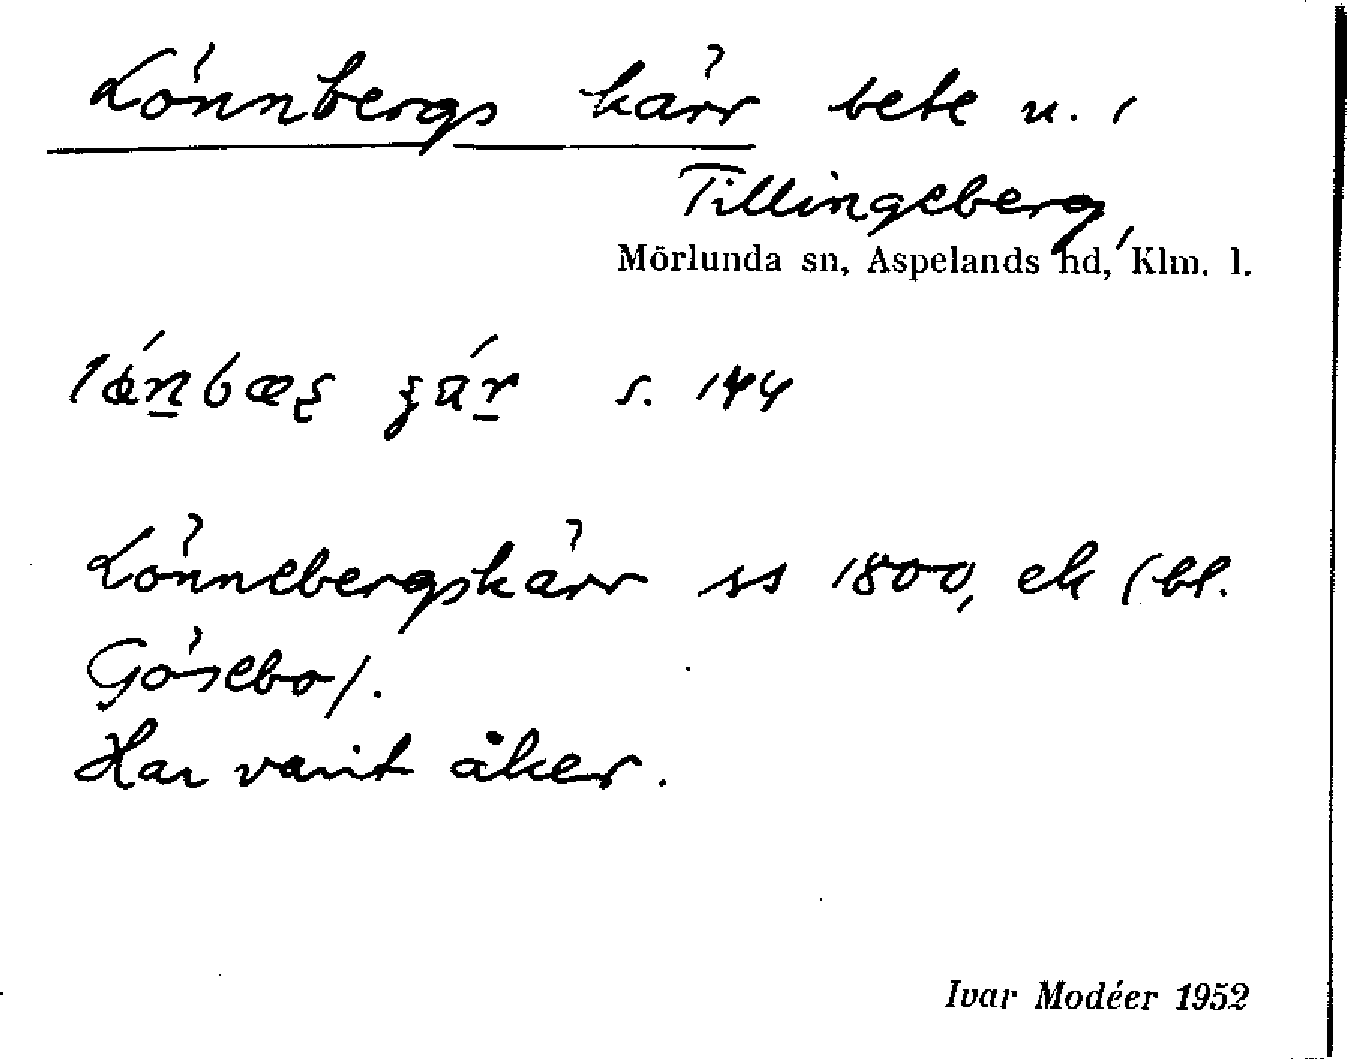 Lönnbergs kärr bete n. i
Tillingeberg,
Mörlunda sn, Aspelands hd, Klm. l.
s. 144
Lönnebergskärr ss 1800, ek (bl.
Gösebo).
Har varit åker.
Ivar Modéer 1952